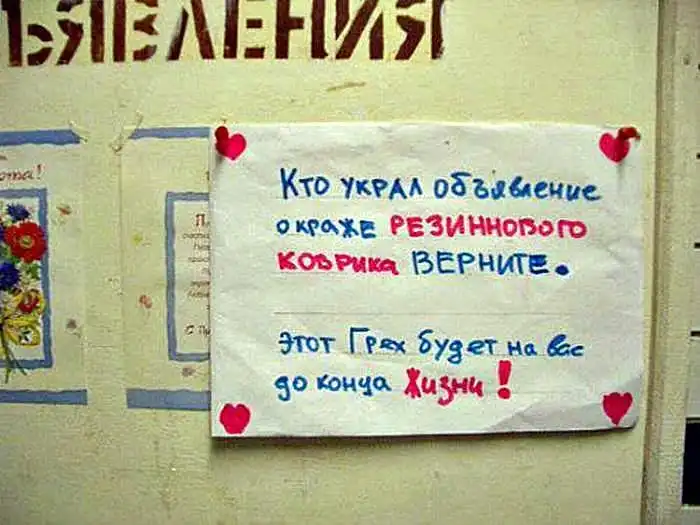 ЪЯВЛЕНИЯ
Кто украл объявление
о краже РЕЗИННОВОГО
КОВРИКА ВЕРНИТЕ.
этот Грех будет на вас
до конца Жизни!